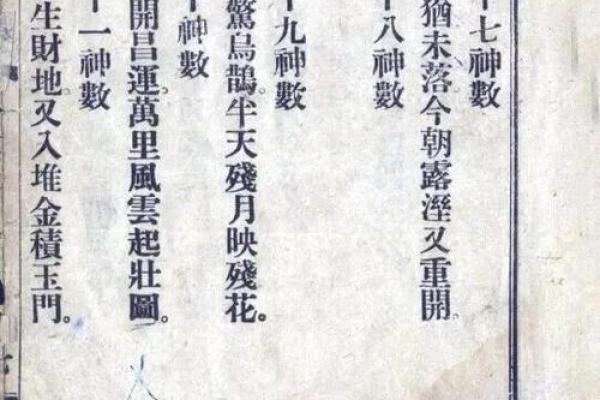 十七神數
猶未落今朝露溼又重開。
十八神數
十九神數
驚烏鵲。半天殘月映殘花。
十神數
開昌運。萬里風雲起壯圖。
十一神數
生財地。又入堆金積玉門。